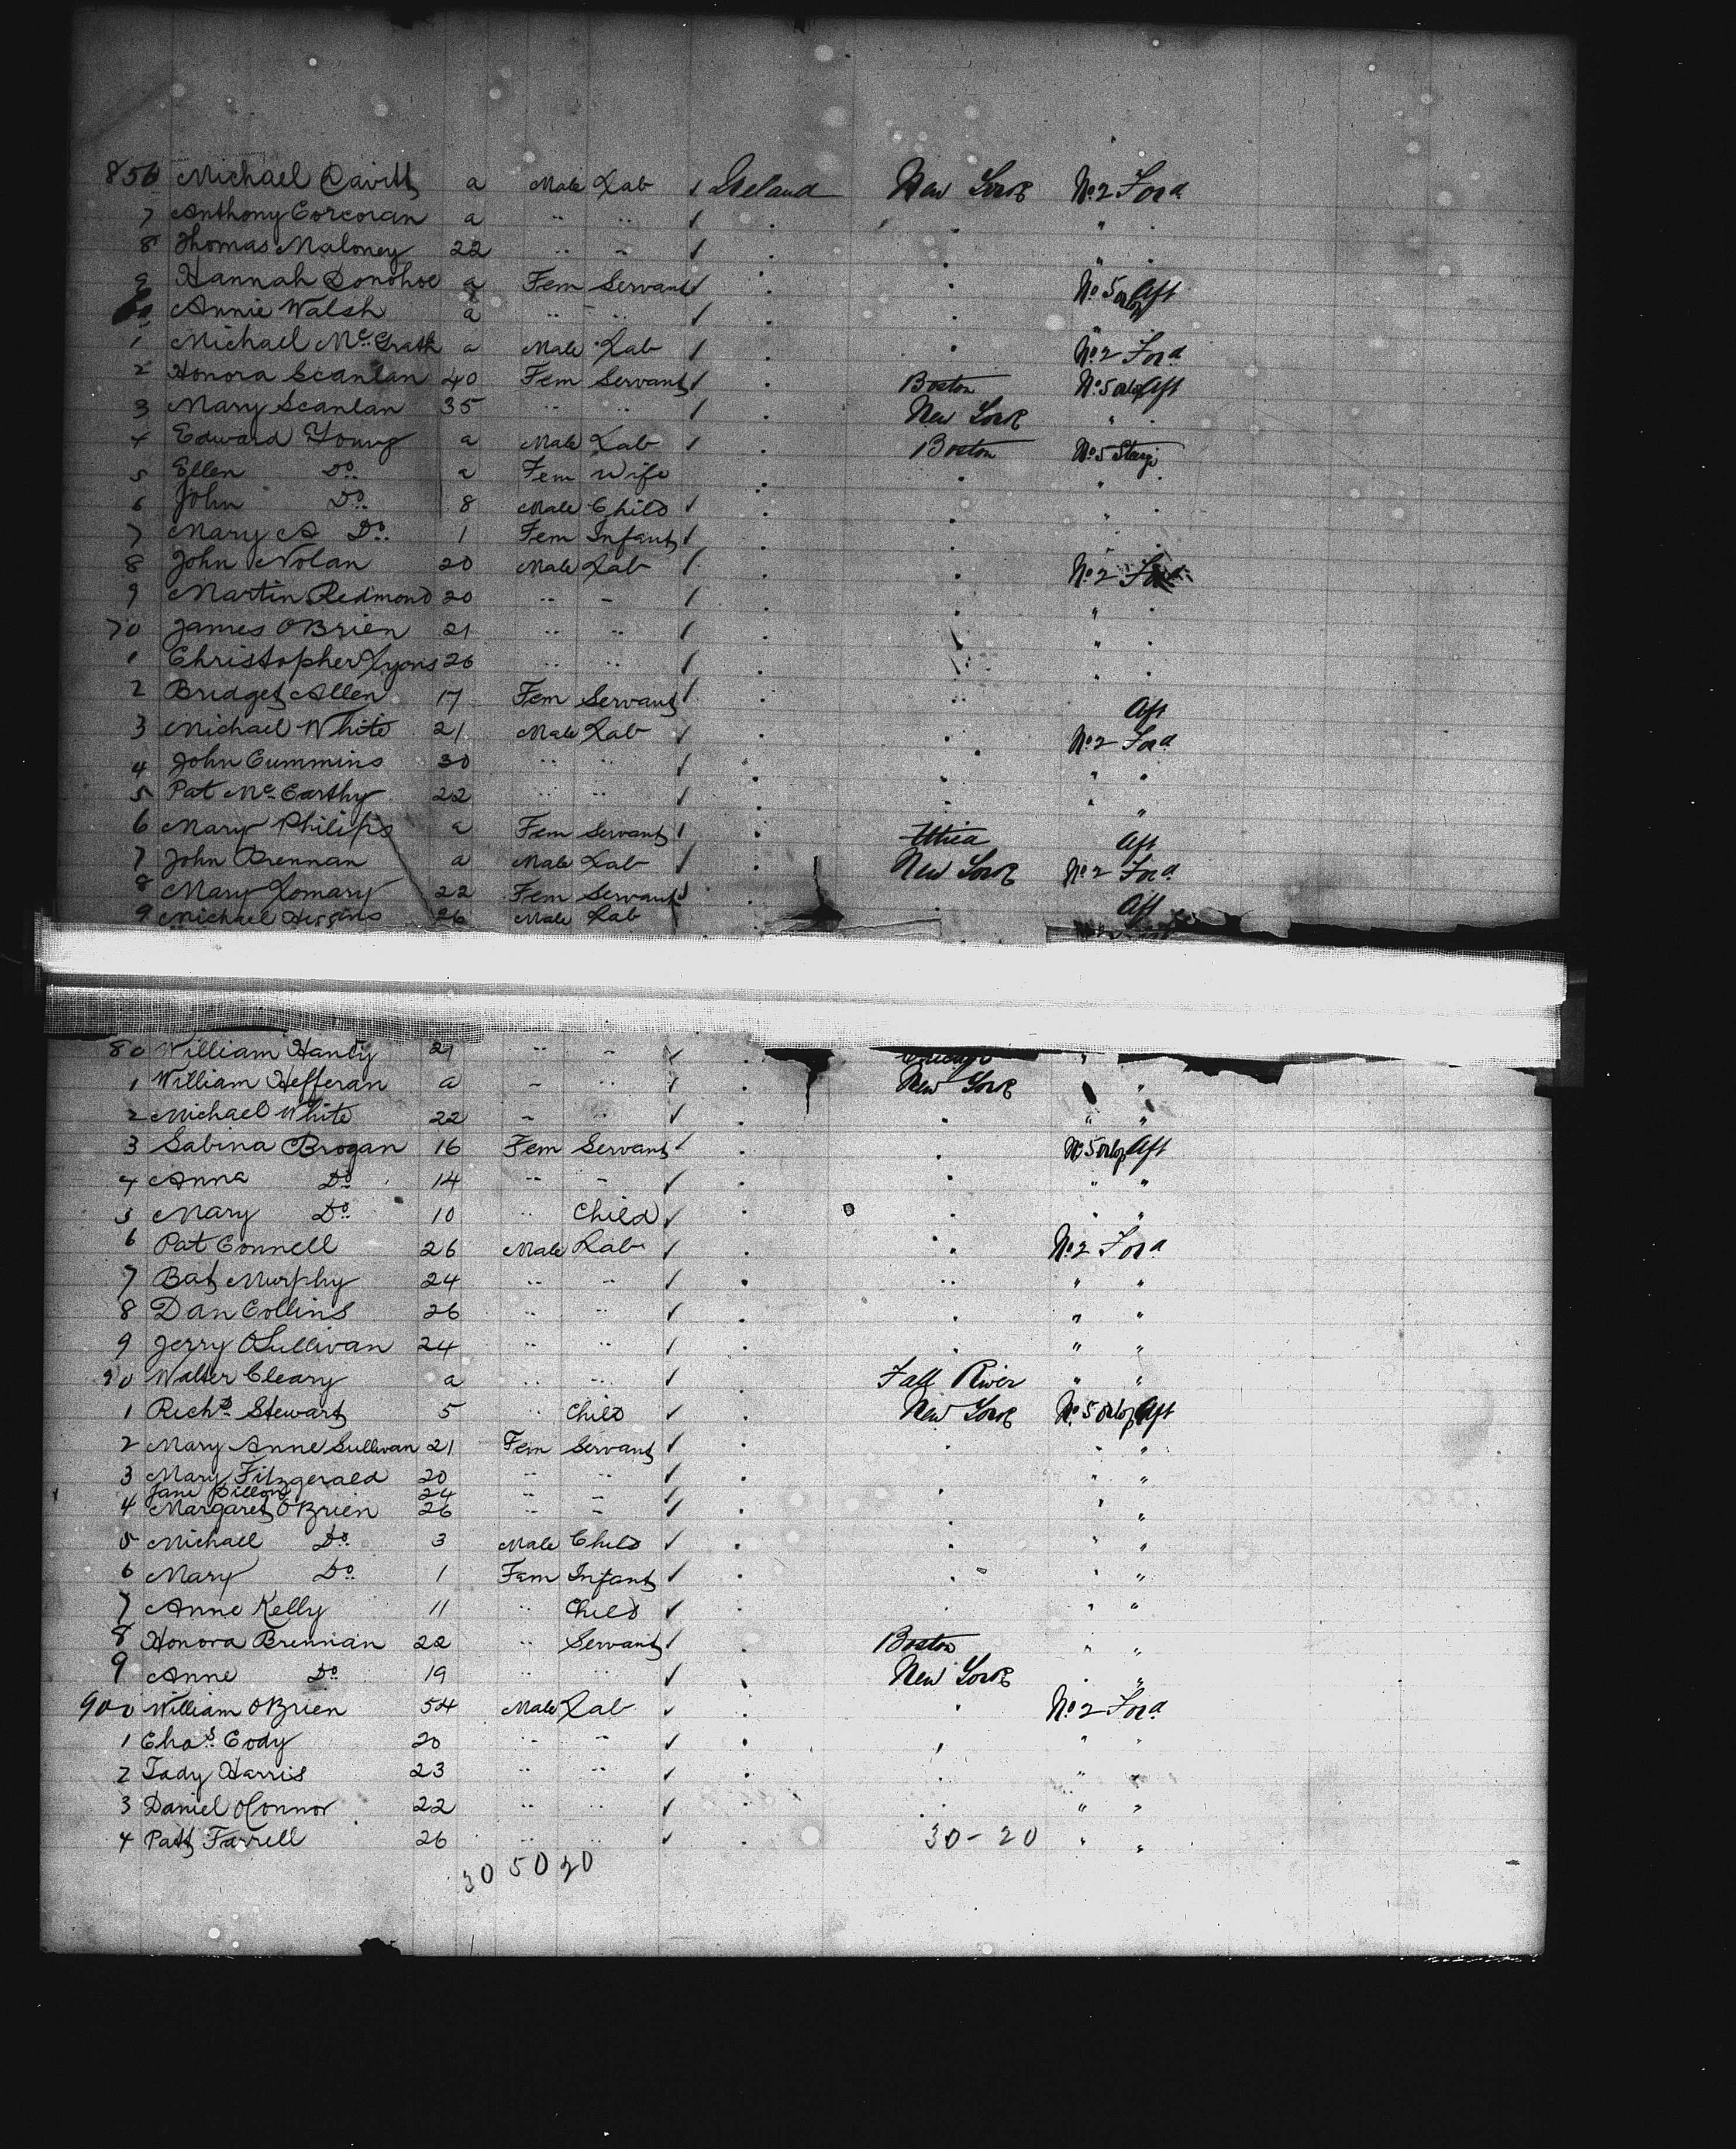 856 Michael Cavitt a Male Lab ✓ Ireland New York No. 2 Ford
7 Anthony Corcoran a " " ✓ " " " "
8 Thomas Maloney 22 " " ✓ " " " "
9 Hannah Donohoe a Fem Servant ✓ " " No. 5 orlop Aft
Annie Walsh a " " ✓ " " "
1 Michael McGrath a Male Lab ✓ " " No. 2 Ford
2 Honora Scanlan 40 Fem Servant ✓ " Boston No. 5 orlop Aft
3 Mary Scanlan 35 " " ✓ " New York " "
4 Edward Young a Male Lab ✓ " Boston No. 5 Steige
5 Ellen Do. a Fem Wife " " " "
6 John Do. 8 Male Child ✓ " " " "
7 Mary A Do. 1 Fem Infant ✓ " " " "
8 John Nolan 20 Male Lab ✓ " " No. 2 Ford
9 Martin Redmond 20 " " ✓ " " " "
70 James O'Brien 21 " " ✓ " " " "
1 Christopher Lyons 26 " " ✓ " " " "
2 Bridget Allen 17 Fem Servant ✓ " " Aft
3 Michael White 21 Male Lab ✓ " " No. 2 Ford
4 John Cummins 30 " " ✓ " " " "
5 Pat McCarthy 22 " " ✓ " " " "
6 Mary Philips a Fem Servant ✓ " Utica Aft
7 John Brennan a Male Lab ✓ " New York No. 2 Ford
8 Mary Lomary 22 Fem Servant ✓ " " Aft
9 Michael Higgins 26 Male Lab
80 William Hanly 21 " " ✓ " Chicago " "
1 William Hefferan a " " ✓ " New York " "
2 Michael White 22 " " ✓ " " " "
3 Sabina Brogan 16 Fem Servant ✓ " " No. 5 orlop Aft
4 Anna Do. 14 " " ✓ " " " "
5 Mary Do. 10 " Child ✓ " " " "
6 Pat Connell 26 Male Lab ✓ " " No. 2 Ford
7 Bat Murphy 24 " " ✓ " " " "
8 Dan Collins 26 " " ✓ " " " "
9 Jerry O'Sullivan 24 " " ✓ " " " "
90 Walter Cleary a " " ✓ " Fall River " "
1 Richd. Stewart 5 " Child ✓ " New York No. 5 orlop Aft
2 Mary Anne Sullivan 21 Fem Servant ✓ " " " "
3 Mary Fitzgerald 20 " " ✓ " " " "
Jane Dillon 24 " " ✓ " "
4 Margaret O'Brien 26 " " ✓ " " "
5 Michael Do. 3 Male Child ✓ " " " "
6 Mary Do. 1 Fem Infant ✓ " " " "
7 Anne Kelly 11 " Child ✓ " " " "
8 Honora Brennan 22 " Servant ✓ " Boston " "
9 Anne Do. 19 " " ✓ " New York " "
900 William O'Brien 54 Male Lab ✓ " " No. 2 Ford
1 Chas. Cody 20 " " ✓ " " " "
2 Tady Harris 23 " " ✓ " " " "
3 Daniel O'Connor 22 " " ✓ " " " "
4 Patt Farrell 26 " " ✓ " 30-20 " "
30 50 20